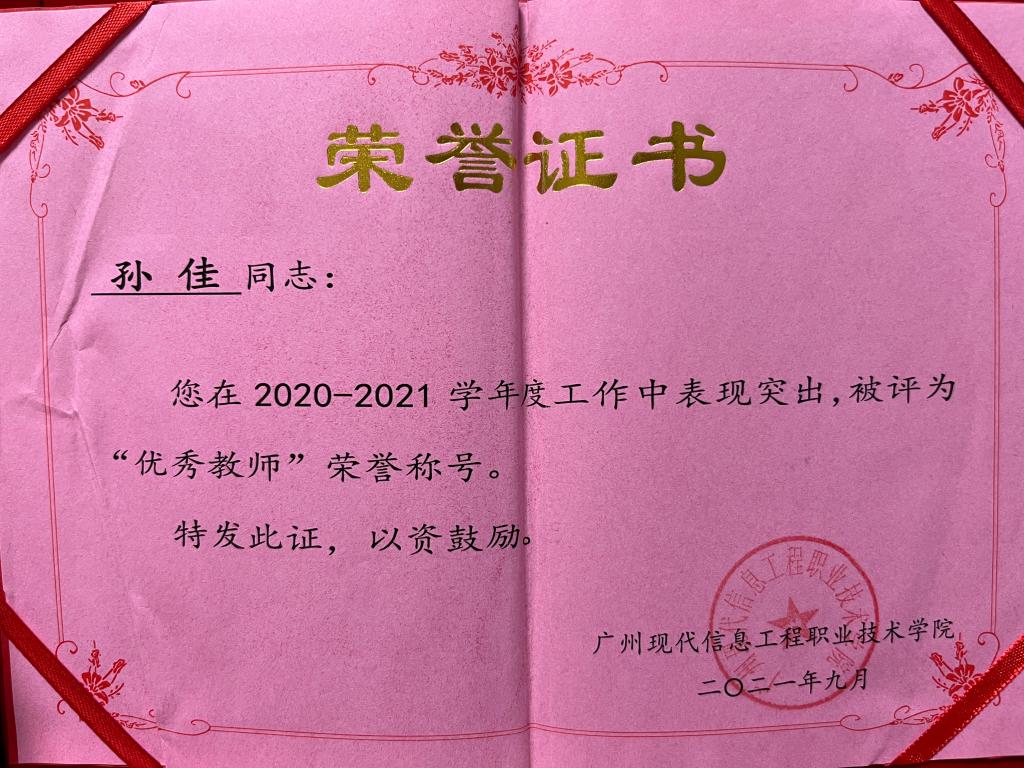 荣誉证书
孙佳同志：
您在2020-2021学年度工作中表现突出，被评为
“优秀教师”荣誉称号。
特发此证，以资鼓励。
广州现代信息工程职业技术学院
二〇二一年九月